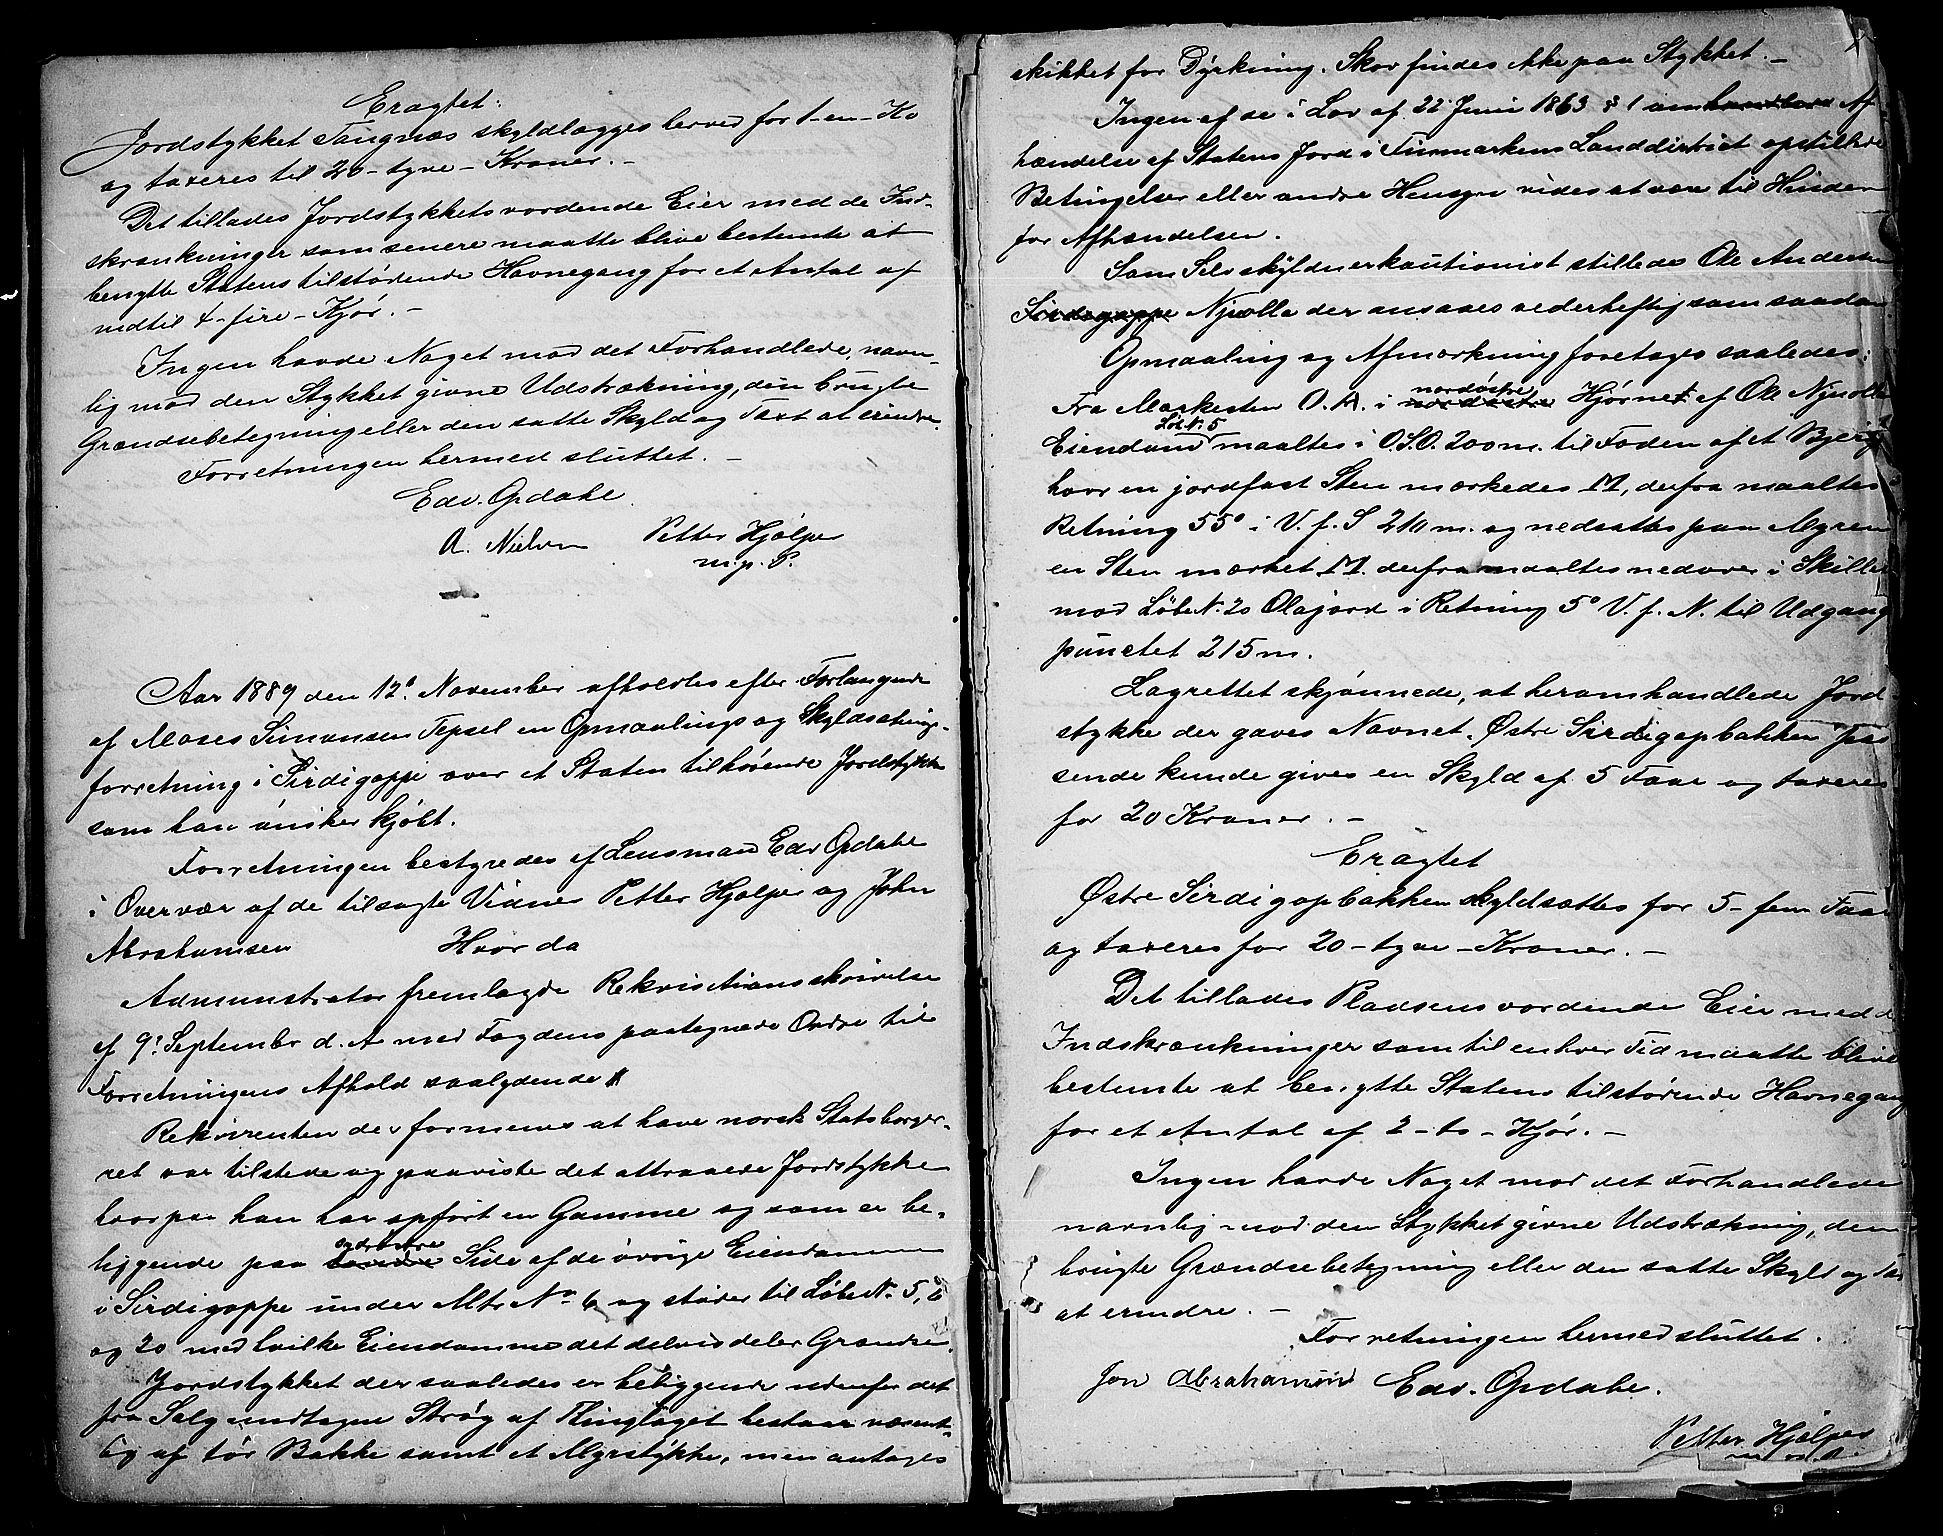 Eragtet:
Jordstykket Tangnæs skyldlægges herved for 1-en-Ko
og taxeres til 20-tyve-Kroner. -
Det tillades Jordstykkets vordende Eier med de Ind-
skrænkninger som senere maatte blive bestemte at
benytte Statens tilstødende Havnegang for et Antal af
indtil 4-fire-Kjør. -
Ingen havde Noget mod det Forhandlede, navn-
lig mod den Stykket givne Udstrækning, den brugte
Grændsebetegning eller den satte Skyld og Taxt at erindre.
Forretningen hermed sluttet. -
Edv. Opdahl
A. Nielsen Petter Hjølper
m. p. P.
Aar 1889 den 12te November afholdtes efter Forlangende
af Moses Simonsen Tepsel en Opmaalings og Skyldsætnings-
forretning i Sirdigoppe over et Staten tilhørende Jordstykke
som han ønsker kjøbt.
Forretningen bestyredes af Lensmand Edv Opdahl
i Overvær af de tilsagte Vidner Petter Hjølper og John
Abrahamsen Hvorda
Administrator fremlagde Rekvisitionsskrivelse
af 9de September d. A med Fogdens paategnede Ordre til
Forretningens Afhold saalydende
Rekvirenten der formenes at have norsk Statsborger-
ret var tilstede og paaviste det attraaede Jordstykke
hvorpaa han har opført en Gamme og som er be-
liggende paa sydvestre Side af de øvrige Eiendomme
i Sirdigoppe under Mtr No 6 og støder til Løbe N. 5, 6
og 20 med hvilke Eiendomme det delvis deler Grændse.
Jordstykket der saaledes er beliggende udenfor det
fra Salg undtagne Strøg af Thinglaget bestaar væsent-
lig af tør Bakke samt et Myrstykke, men antages
skikket for Dyrkning. Skov findes ikke paa Stykket. -
Ingen af de i Lov af 22 Juni 1863 § 1 om Af
hændelse af Statens Jord i Finmarkens Landdistrict opstillede
Betingelser eller andre Hensyn vides at være til Hinder
for Afhændelsen.
Som Selvskyldnerkautionist stilledes Ole Andersen
Sirdagoppe Njuolla der ansaaes vederheftig som saadan.
Opmaaling og Afmærkning foretoges saaledes:
Fra Markesten O. A. i nordøstre Hjørnet af Ole Njuolla
Eiendom Løb. N. 5 maaltes i O.S.O. 200 m. til Foden af et Bjerg
hvor en jordfast Sten mærkedes M, derfra maaltes
Retning 55° i V. f. S 210 m. og nedsattes paa Myren
en Sten mærket M. derfra maaltes nedover i Skillet
mod Løbe N. 20 Olajord i Retning 5° V. f. N. til Udgangs
punctet 215 m.
Lagrettet skjønnede, at heromhandlede Jord-
stykke der gaves Navnet "Østre Sirdigopbakken" Pas
sende kunde gives en Skyld af 5 Faar og taxeres
for 20 Kroner. -
Eragtet
Østre Sirdigopbakken skyldsættes for 5-fem Faar
og taxeres for 20-tyve-Kroner. -
Det tillades Pladsens vordende Eier med de
Indskrænkninger som til enhver Tid maatte blive
bestemte at benytte Statens tilstødende Havnegang
for et Antal af 2-to-Kjør. -
Ingen havde Noget mod det Forhandlede
navnlig mod den Stykket givne Udstrækning, den
brugte Grændsebetegning eller den satte Skyld og Tax
at erindre. -
Forretningen hermed sluttet.
Jon Abrahamsen Edv. Opdahl.
Petter Hjølper
m. p. P.